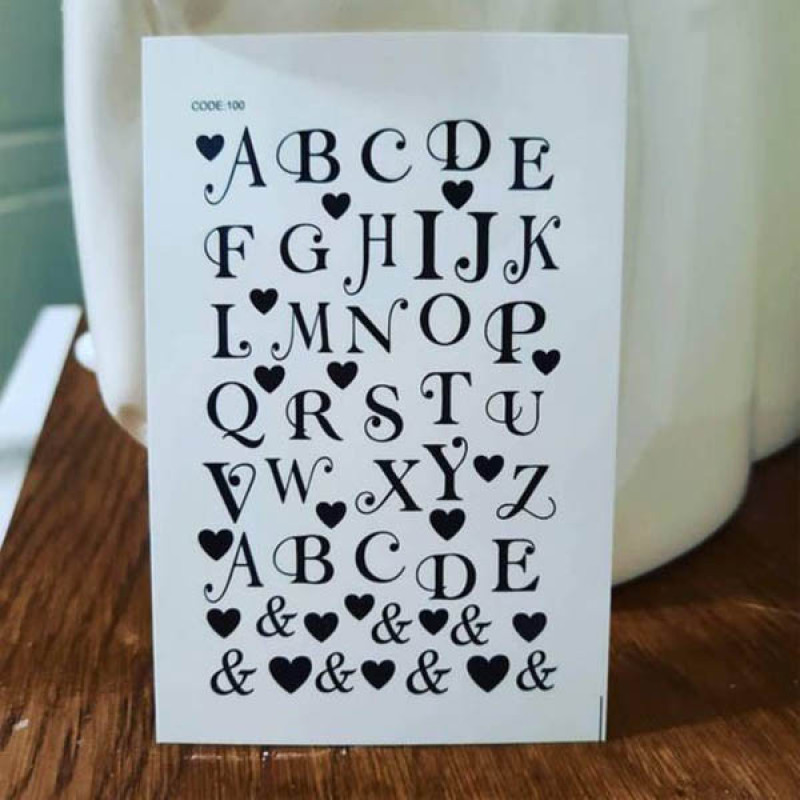 CODE:100
A B C D E
F G H I J K
L M N O P
Q R S T U
V W X Y Z
A B C D E
& & &
& & & &